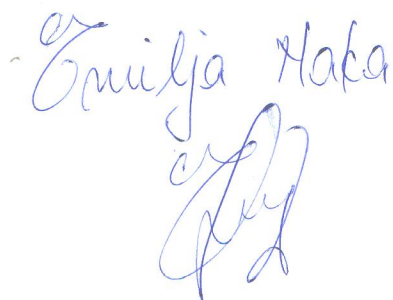 Emilja Maka